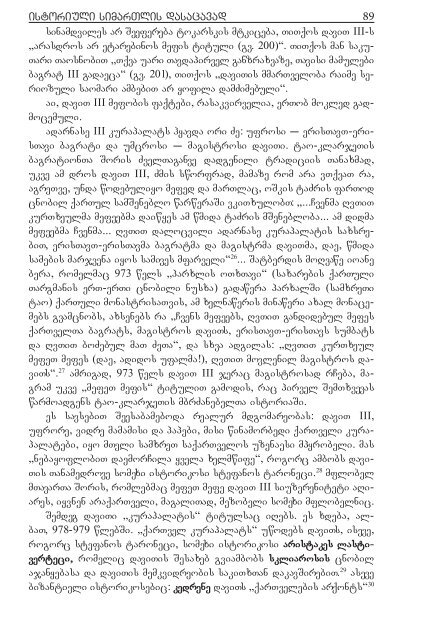 ისტორიული სიმართლის დასაცავად 89
სინამდვილეს არ შეეფერება ტოკარსკის მტკიცება, თითქოს დავით III-ს
„არასდროს არ ეტარებინოს მეფის ტიტული (გვ. 200)“. თითქოს მან საკუ-
თარი თაოსნობით „თქვა უარი თავდაპირველ განზრახვაზე, თავისი მამულები
ბაგრატ III გადაეცა“ (გვ. 201), თითქოს „დავითის მმართველობა რაიმე სე-
რიოზული საომარი ამბებით არ ყოფილა დამძიმებული“.
აი, დავით III მეფობის ფაქტები, რასაკვირველია, ერთობ მოკლედ გად-
მოცემული.
ადარნასე III კურაპალატს ჰყავდა ორი ძე: უფროსი — ერისთავთ-ერი-
სთავი ბაგრატი და უმცროსი — მაგისტროსი დავითი. ტაო-კლარჯეთის
ბაგრატიონთა შორის ძველთაგანვე დადგენილი ტრადიციის თანახმად,
უკვე ამ დროს დავით III, ძმის სწორფრად, მამაზე რომ არა ვთქვათ რა,
აგრეთვე, უნდა წოდებულიყო მეფედ და მართლაც, ოშკის ტაძრის ფართოდ
ცნობილ ქართულ სამშენებლო წარწერაში ვკითხულობთ: „...ჩვენმა ღვთით
კურთხეულმა მეფეებმა დაიწყეს ამ წმიდა ტაძრის მშენებლობა... ამ დიდმა
მეფეებმა ჩვენმა... ღვთით დალოცვილი ადარნასე კურაპალატის სახსრე-
ბით, ერისთავთ-ერისთავმა ბაგრატმა და მაგისტრმა დავითმა, დაე, წმიდა
სამების მარჯვენა იყოს სამივეს მფარველი“26... შატბერდის მოღვაწე იოანე
ბერა, რომელმაც 973 წელს „პარხლის ოთხთავი“ (სახარების ქართული
თარგმანის ერთ-ერთი ცნობილი ნუსხა) გადაწერა პარხალში (სამხრეთი
ტაო) ქართული მონასტრისათვის, ამ ხელნაწერის მინაწერი ახალ მონაცე-
მებს გვაცნობს, ახსენებს რა „ჩვენს მეფეებს, ღვთით განდიდებულ მეფეს
ქართველთა ბაგრატს, მაგისტროს დავითს, ერისთავთ-ერისთავს სუმბატს
და ღვთით ბოძებულ მათ ძეთა“, და სხვა ადგილას: „ღვთით კურთხეულ
მეფეთ მეფეს (დაე, ადიდოს უფალმა!), ღვთით მოვლენილ მაგისტროს და-
ვითს“.27 ამრიგად, 973 წელს დავით III ჯერაც მაგისტროსად რჩება, მა-
გრამ უკვე „მეფეთ მეფის“ ტიტულით გამოდის, რაც პირველ შემთხვევას
წარმოადგენს ტაო-კლარჯეთის მბრძანებელთა ისტორიაში.
ეს სავსებით შეესაბამებოდა რეალურ მდგომარეობას: დავით III,
უფრორე, ვიდრე მამამისი და პაპები, მისი წინამორბედი ქართველი კურა-
პალატები, იყო მთელი სამხრეთ საქართველოს უზენაესი მპყრობელი. მას
„ნებაყოფლობით დაემორჩილა ყველა ხელმწიფე“, როგორც ამბობს დავი-
თის თანამედროვე სომეხი ისტორიკოსი სტეფანოს ტარონეცი.28 მფლობელ
მთავართა შორის, რომლებმაც მეფეთ მეფე დავით III სიუზერენიტეტი აღი-
არეს, იყვნენ არაქართველი, მაგალითად, მეზობელი სომეხი მფლობელნიც.
შემდეგ დავითი „კურაპალატის“ ტიტულსაც იღებს. ეს ხდება, ალ-
ბათ, 978-979 წლებში. „ქართველ კურაპალატს“ უწოდებს დავითს, ისევე,
როგორც სტეფანოს ტარონეცი, სომეხი ისტორიკოსი არისტაკეს ლასტი-
ვერტეცი, რომელიც დავითის შესახებ გვიამბობს სკლიაროსის ცნობილ
აჯანყებასა და დავითის მემკვიდრეობის საკითხთან დაკავშირებით.29 ასევე
ბიზანტიელი ისტორიკოსებიც: კედრენე დავითს „ქართველების არქონტს“30